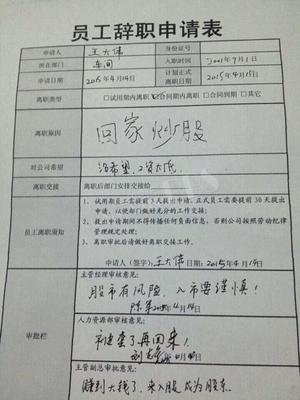 员工辞职申请表
申请人 王大伟 身份证号
所在部门 车间 入职时间 2001年7月1日
申请日期 2015年4月14日 计划正式离职日期 2015年4月15日
离职类型 □试用期内离职 ☑合同期内离职 □合同到期 □其它
离职原因 回家炒股
对公司希望 没希望,工资太低
离职交接 离职后部门安排交接给
员工离职须知
1、试用期员工需提前3天提出申请,正式员工需要提前30天提出
申请,以使部门做好充分的工作交接;
2、申请期间不得传播任何负面信息,否则公司按照劳动纪律
管理规定处理;
3、离职审批后请做好离职交接工作。
申请人(签字):王大伟 日期:2015年4月14日
审批栏
主管经理审核意见:
股市有风险,入市要谨慎!
2015年4月14日
人力资源部审核意见:
亏了再回来!
主管副总审批意见:
赚到大钱了,来入股成为股东.